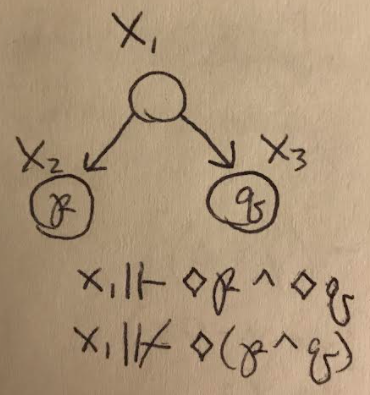 X₁
X₂ X₃
p q
x₁ ⊩ ◇p ∧ ◇q
x₁ ⊮ ◇(p ∧ q)